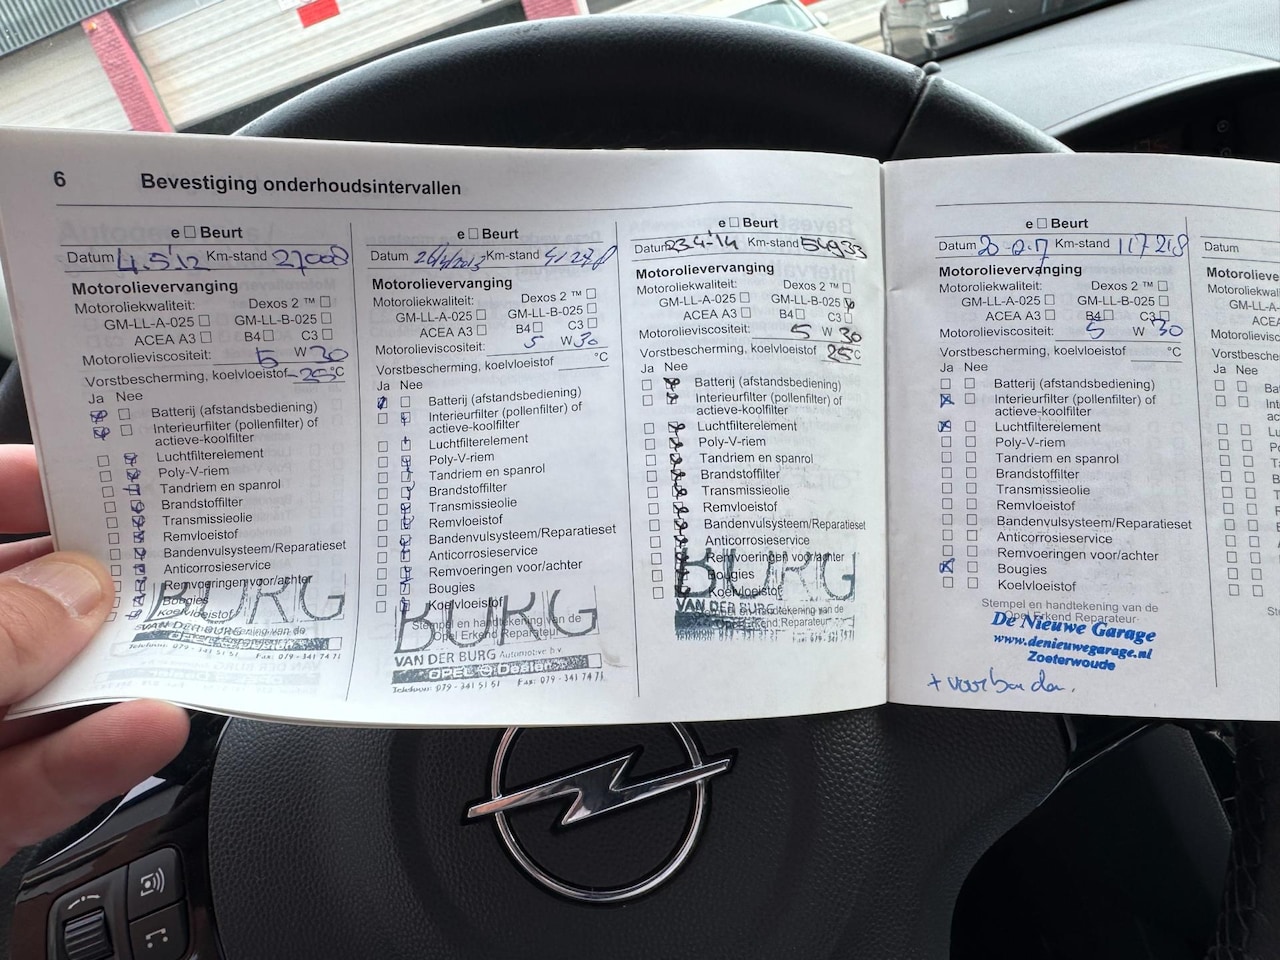 6 Bevestiging onderhoudsintervallen
e □ Beurt
Datum 4.5.'12 Km-stand 27008
Motorolievervanging
Motoroliekwaliteit: Dexos 2 ™ □
GM-LL-A-025 □ GM-LL-B-025 □
ACEA A3 □ B4 □ C3 □
Motorolieviscositeit: 5 W 30
Vorstbescherming, koelvloeistof -25 °C
Ja Nee
Batterij (afstandsbediening)
Interieurfilter (pollenfilter) of
actieve-koolfilter
Luchtfilterelement
Poly-V-riem
Tandriem en spanrol
Brandstoffilter
Transmissieolie
Remvloeistof
Bandenvulsysteem/Reparatieset
Anticorrosieservice
Remvoeringen voor/achter
Bougies
Koelvloeistof
BURG
VAN DER BURG
Telefoon: 079 - 341 51 51 Fax: 079 - 341 74 71
e □ Beurt
Datum Km-stand
Motorolievervanging
Motoroliekwaliteit: Dexos 2 ™ □
GM-LL-A-025 □ GM-LL-B-025 □
ACEA A3 □ B4 □ C3 □
Motorolieviscositeit: 5 W 30
Vorstbescherming, koelvloeistof °C
Ja Nee
Batterij (afstandsbediening)
Interieurfilter (pollenfilter) of
actieve-koolfilter
Luchtfilterelement
Poly-V-riem
Tandriem en spanrol
Brandstoffilter
Transmissieolie
Remvloeistof
Bandenvulsysteem/Reparatieset
Anticorrosieservice
Remvoeringen voor/achter
Bougies
Koelvloeistof
Stempel en handtekening van de
Opel Erkend Reparateur
BURG
VAN DER BURG Automotive b.v.
OPEL Dealer
Telefoon: 079 - 341 51 51 Fax: 079 - 341 74 71
e □ Beurt
Datum 23-4-'14 Km-stand 54933
Motorolievervanging
Motoroliekwaliteit: Dexos 2 ™ □
GM-LL-A-025 □ GM-LL-B-025
ACEA A3 □ B4 □ C3 □
Motorolieviscositeit: 5 W 30
Vorstbescherming, koelvloeistof 25 °C
Ja Nee
Batterij (afstandsbediening)
Interieurfilter (pollenfilter) of
actieve-koolfilter
Luchtfilterelement
Poly-V-riem
Tandriem en spanrol
Brandstoffilter
Transmissieolie
Remvloeistof
Bandenvulsysteem/Reparatieset
Anticorrosieservice
Remvoeringen voor/achter
Bougies
Koelvloeistof
Stempel en handtekening van de
Opel Erkend Reparateur
BURG
VAN DER BURG
e □ Beurt
Datum Km-stand 117218
Motorolievervanging
Motoroliekwaliteit: Dexos 2 ™ □
GM-LL-A-025 □ GM-LL-B-025 □
ACEA A3 □ B4 □ C3 □
Motorolieviscositeit: 5 W 30
Vorstbescherming, koelvloeistof °C
Ja Nee
Batterij (afstandsbediening)
Interieurfilter (pollenfilter) of
actieve-koolfilter
Luchtfilterelement
Poly-V-riem
Tandriem en spanrol
Brandstoffilter
Transmissieolie
Remvloeistof
Bandenvulsysteem/Reparatieset
Anticorrosieservice
Remvoeringen voor/achter
Bougies
Koelvloeistof
Stempel en handtekening van de
Opel Erkend Reparateur
De Nieuwe Garage
www.denieuwegarage.nl
Zoeterwoude
+ voorbanden.
Datum